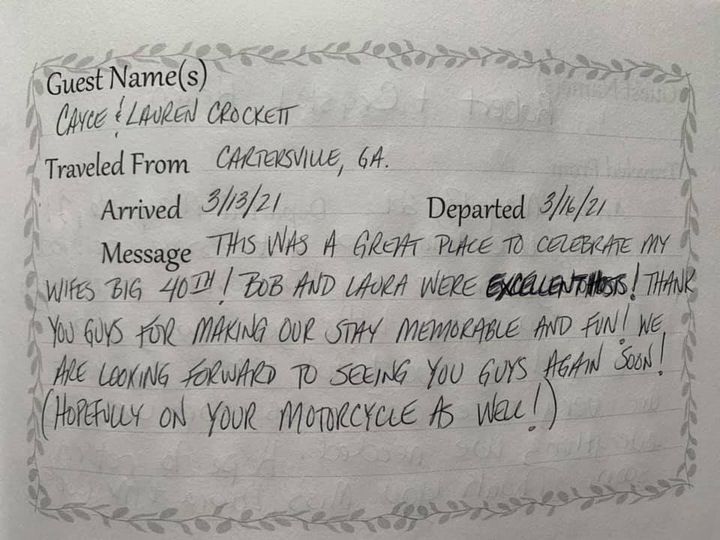 Guest Name(s)
CAYCE & LAUREN CROCKETT
Traveled From CARTERSVILLE, GA.
Arrived 3/13/21 Departed 3/16/21
Message THIS WAS A GREAT PLACE TO CELEBRATE MY
WIFES BIG 40TH! BOB AND LAURA WERE EXCELLENT HOSTS! THANK
YOU GUYS FOR MAKING OUR STAY MEMORABLE AND FUN! WE
ARE LOOKING FORWARD TO SEEING YOU GUYS AGAIN SOON!
(HOPEFULLY ON YOUR MOTORCYCLE AS WELL!)